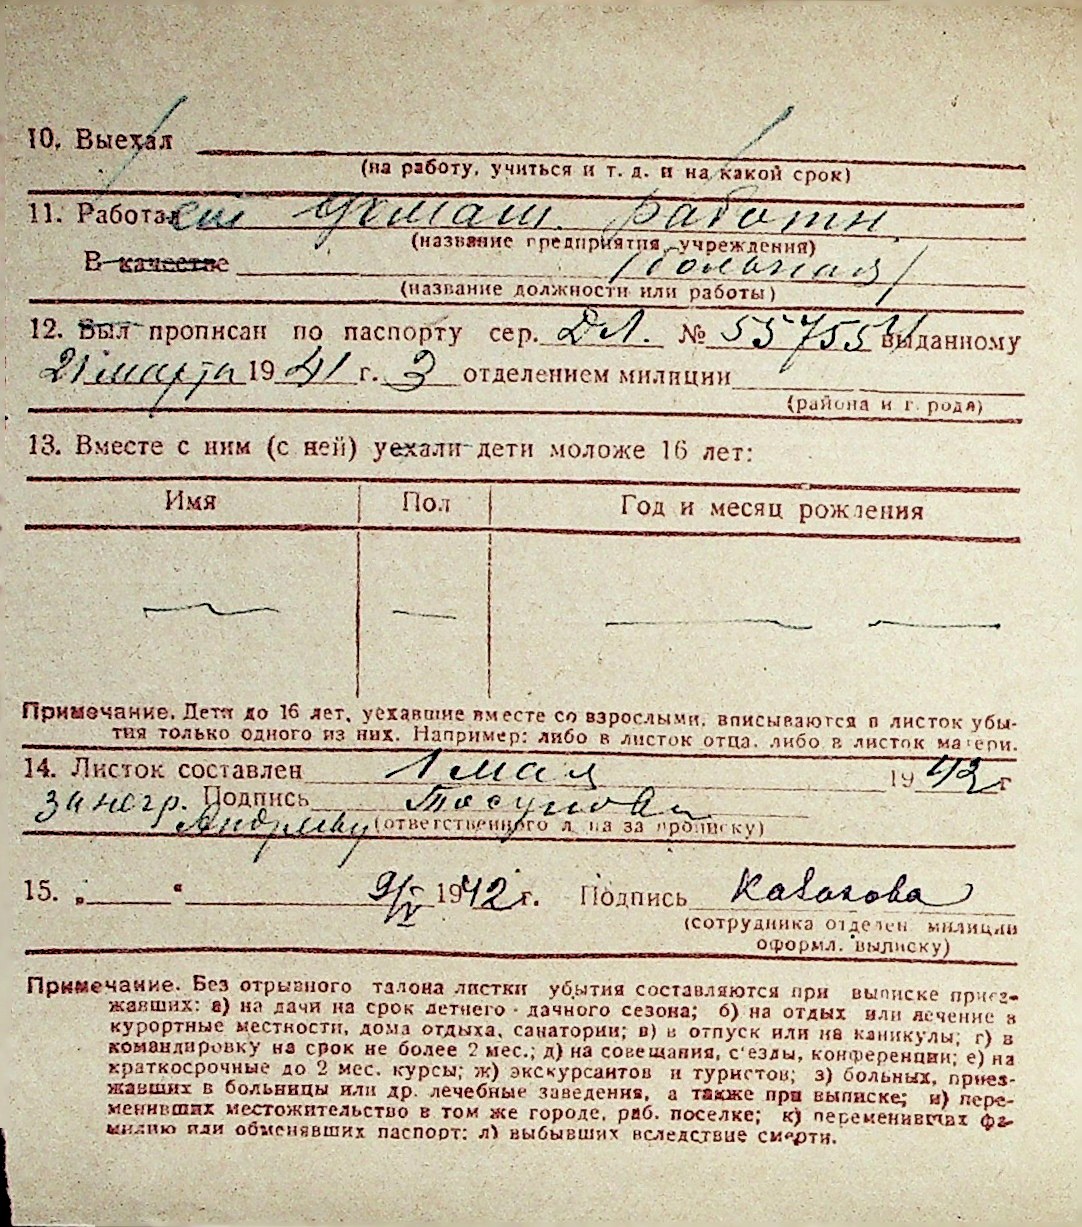 10. Выехал
(на работу, учиться и т. д. и на какой срок)
11. Работал домаш. работн.
(название предприятия, учреждения)
В качестве (больная)
(название должности или работы)
12. Был прописан по паспорту сер. ДЛ. № 557551 выданному
21 марта 19 41 г. 3 отделением милиции
(района и г. рода)
13. Вместе с ним (с ней) уехали дети моложе 16 лет:
Имя Пол Год и месяц рождения
Примечание. Дети до 16 лет, уехавшие вместе со взрослыми, вписываются в листок убы-
тия только одного из них. Например: либо в листок отца, либо в листок матери.
14. Листок составлен 1 мая 19 42 г
Подпись
(ответственного лица за прописку)
15. „ “ 9/V 1942 г. Подпись Казакова
(сотрудника отделен милиции
оформл. выписку)
Примечание. Без отрывного талона листки убытия составляются при выписке приез-
жавших: а) на дачи на срок летнего - дачного сезона; б) на отдых или лечение в
курортные местности, дома отдыха, санатории; в) в отпуск или на каникулы; г) в
командировку на срок не более 2 мес.; д) на совещания, с'езды, конференции; е) на
краткосрочные до 2 мес. курсы; ж) экскурсантов и туристов; з) больных, приез-
жавших в больницы или др. лечебные заведения, а также при выписке; и) пере-
менивших местожительство в том же городе, раб. поселке; к) переменивших фа-
милию или обменявших паспорт; л) выбывших вследствие смерти.